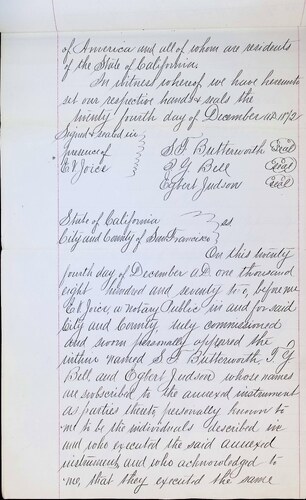 of America and all of whom are residents
of the State of California.
In witness whereof we have hereunto
set our respective hands & seals the
twenty fourth day of December A.D. 1872
Signed & sealed in
presence of
E V Joice
S F Butterworth Seal
T G Bell Seal
Egbert Judson Seal
State of California
City and County of San Francisco ss
On this twenty
fourth day of December A.D. one thousand
eight hundred and seventy two, before me
E V Joice, a notary Public in and for said
City and County, duly commissioned
and sworn personally appeared the
within named S F Butterworth, T. G
Bell, and Egbert Judson whose names
are subscribed to the annexed instrument
as parties thereto, personally known to
me to be the individuals described in
and who executed the said annexed
instrument, and who acknowledged to
me, that they executed the same